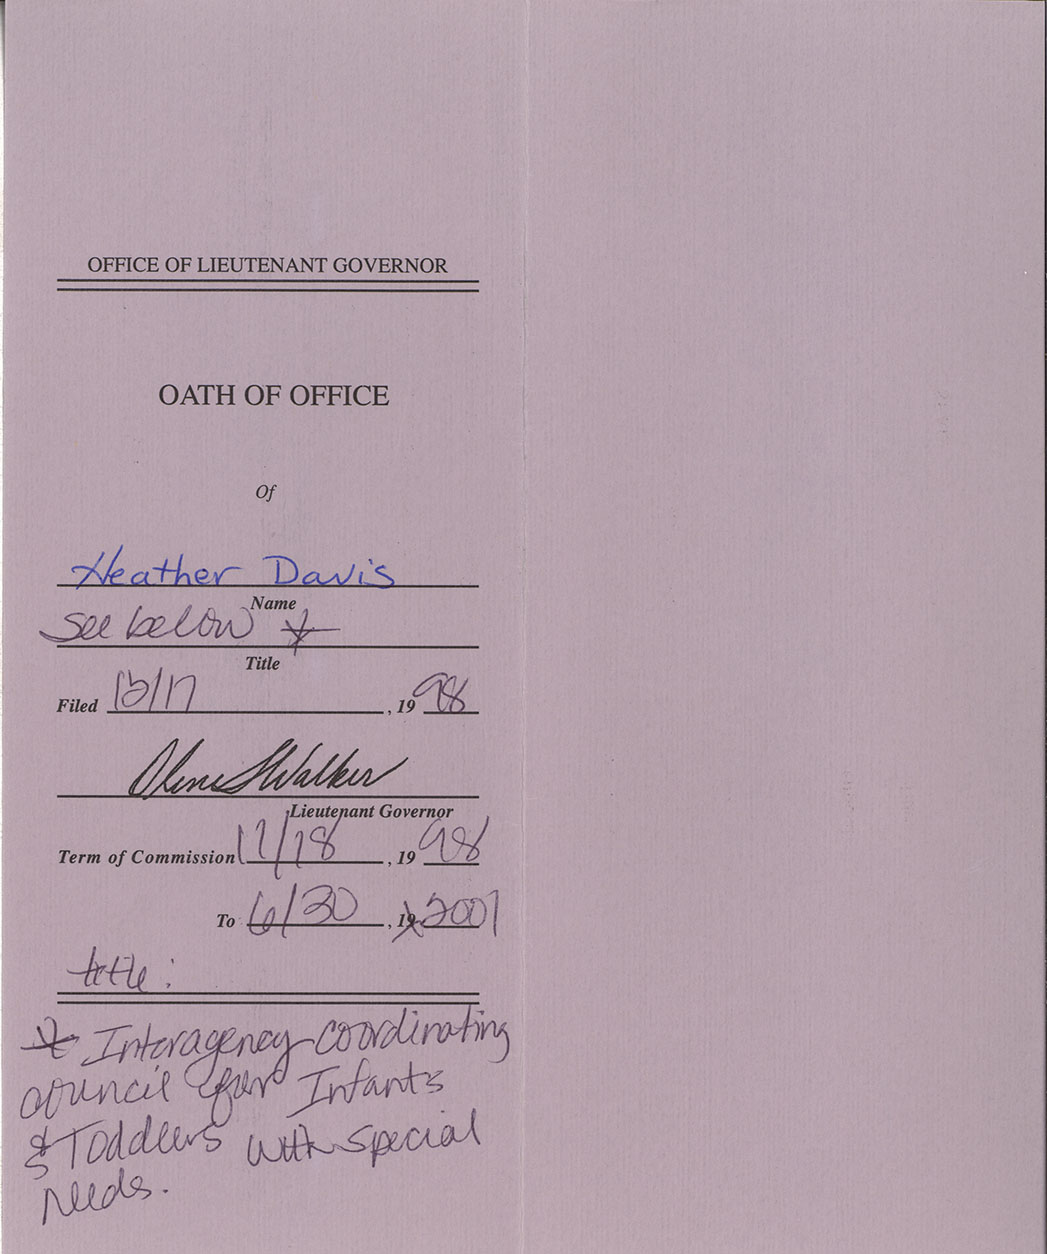 OFFICE OF LIEUTENANT GOVERNOR
OATH OF OFFICE
Of
Heather Davis
Name
See below *
Title
Filed 12/17, 1998
Olene S Walker
Lieutenant Governor
Term of Commission 11/18, 1998
To 6/30, 19 2001
title:
* Interagency coordinating
council for Infants
& Toddlers with special
needs.